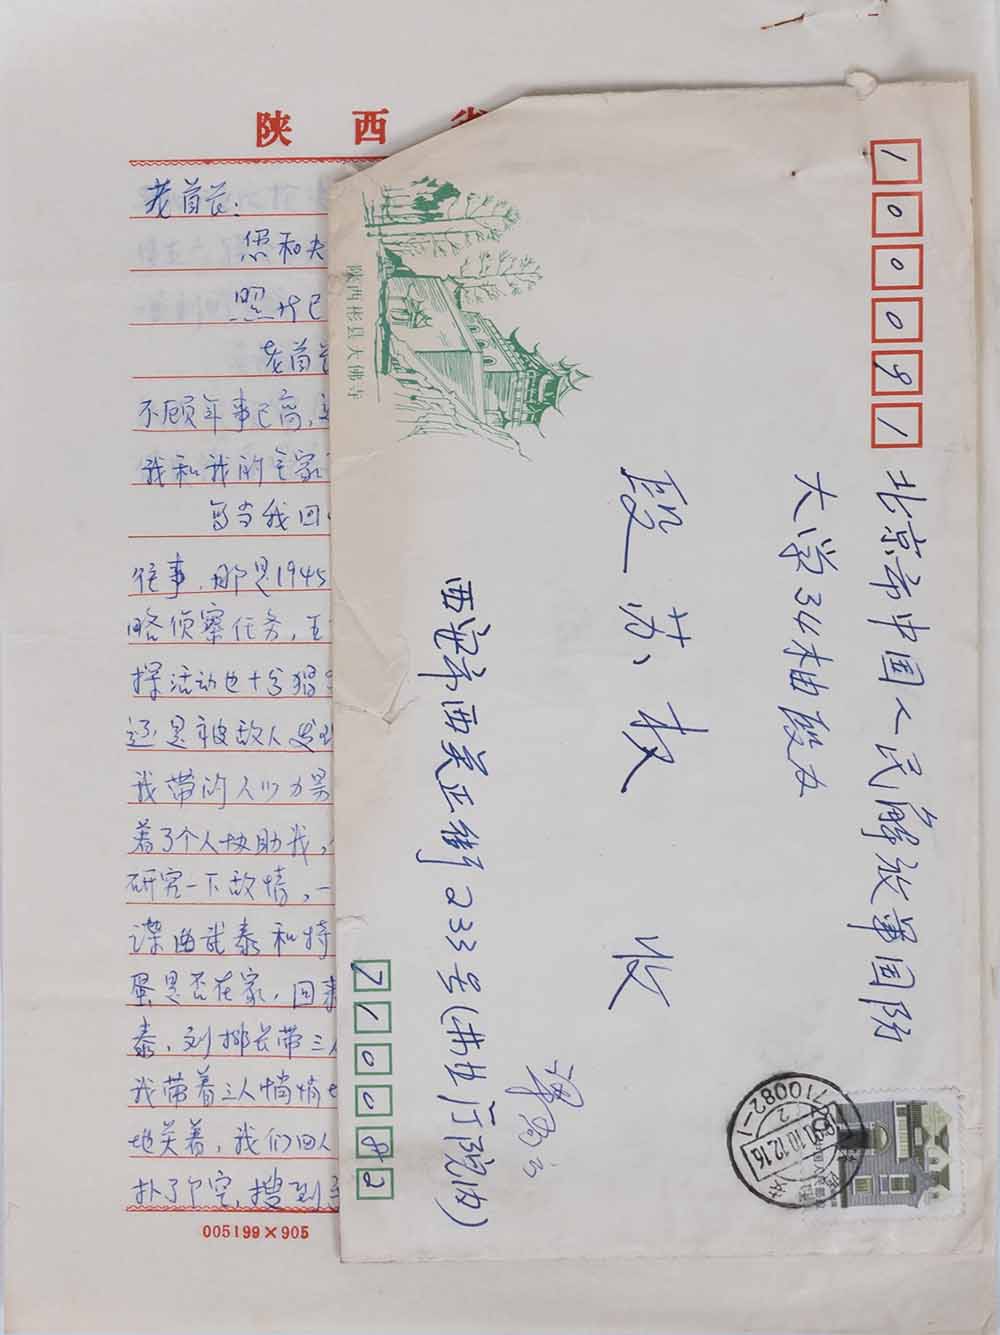 陕西省
老首长:
您和夫
照片已
老首长
不顾年事已高,
我和我的全家
每当我回
往事,那是1945
略侦察任务,
探活动也十分猖
还是被敌人发现
我带的人少力
着了个人协助我,
研究一下敌情,一
梁曲武泰和特
蛋是否在家,回来
泰,刘排长带三人
我带着三人悄悄
地关着,我们四人
扑了个空,搜到
005199×905
100091
北京市中国人民解放军国防
大学34楼段办
段苏权 收
西安市西关正街233号(供电厅院内)
710082
陕西彬县大佛寺
710082-1
10.12.16